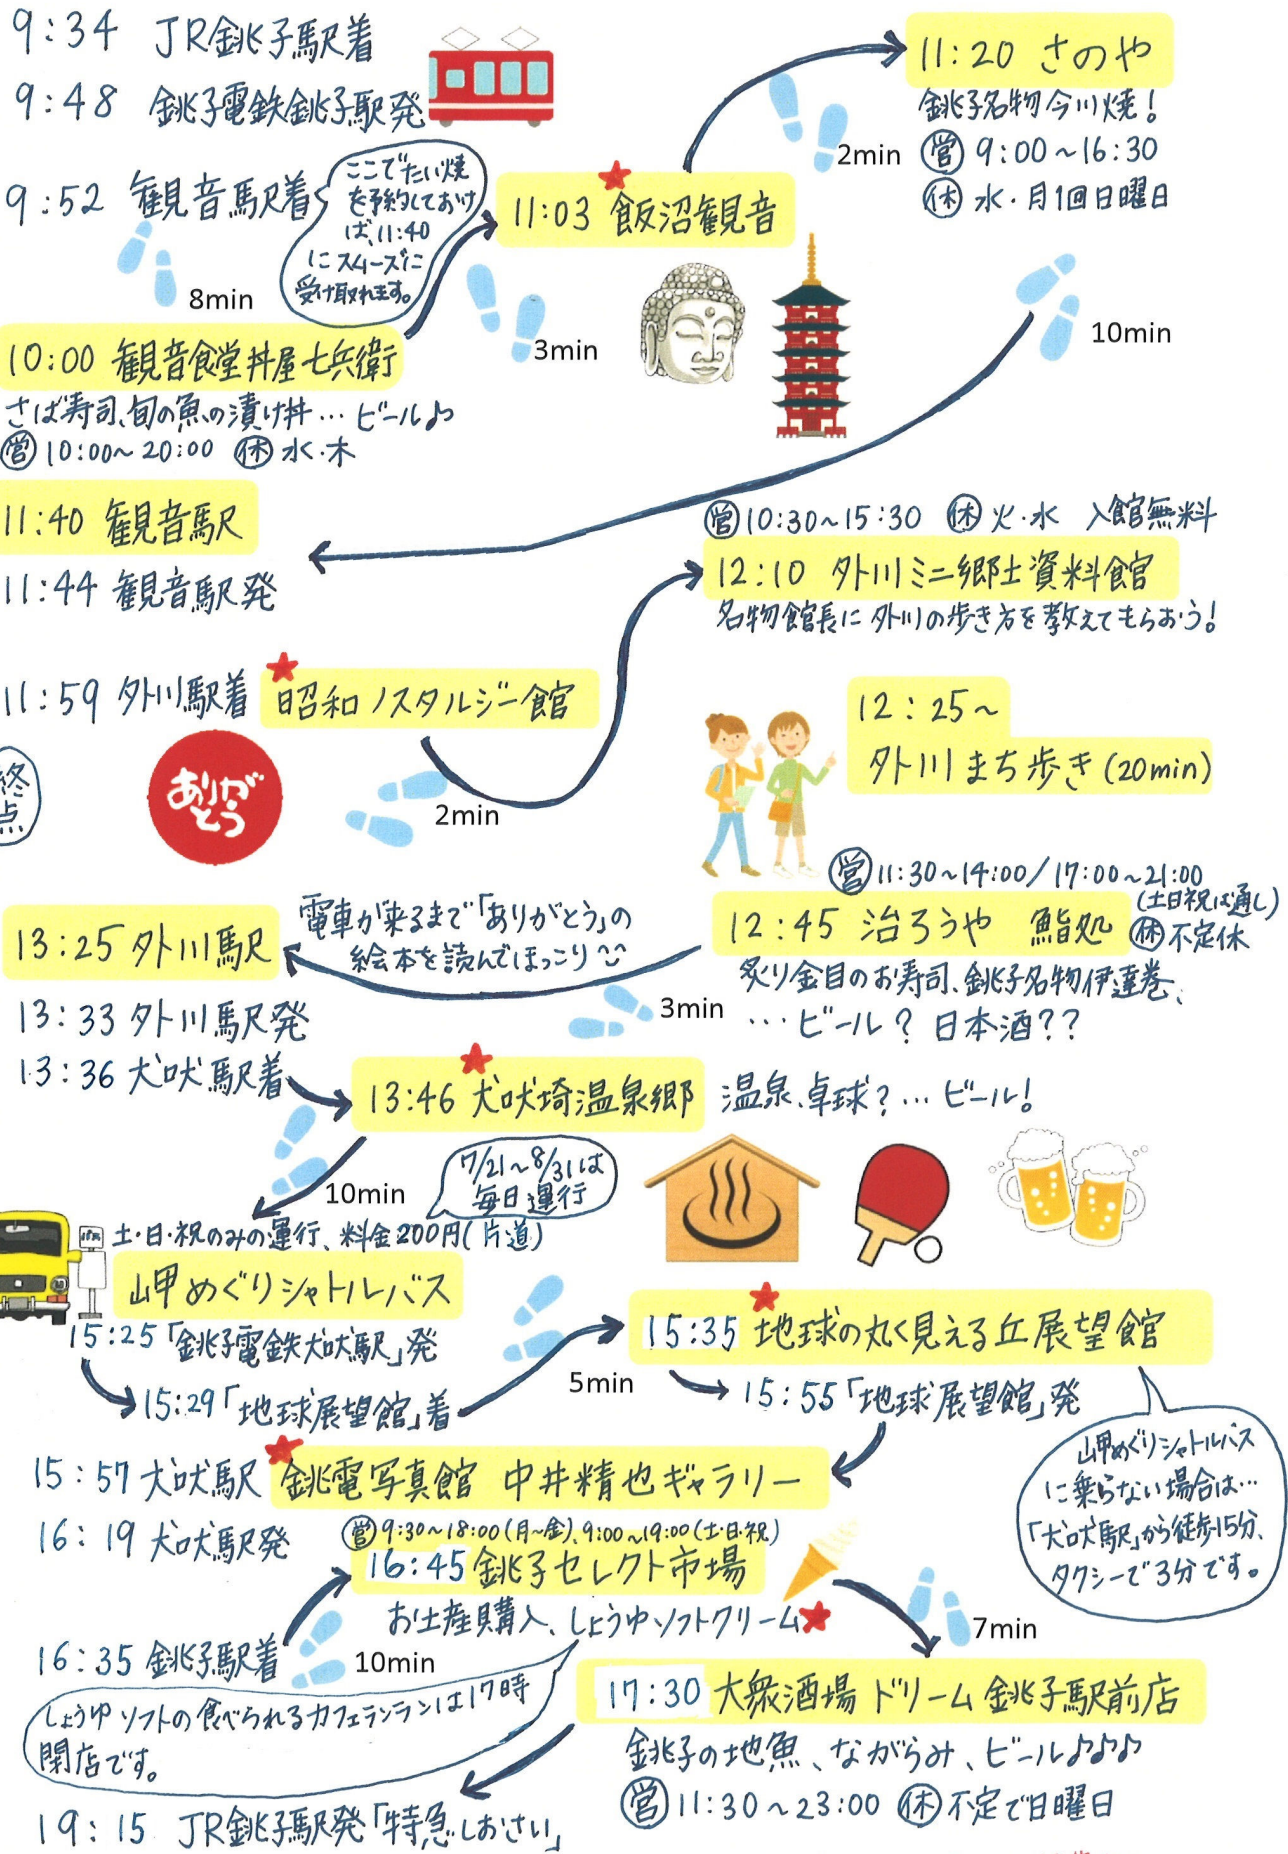 9:34 JR銚子駅着
9:48 銚子電鉄銚子駅発
9:52 観音駅着
ここでたい焼
を予約しておけ
ば、11:40
にスムーズに
受け取れます。
8min
10:00 観音食堂丼屋七兵衛
さば寿司、旬の魚の漬け丼…ビール♪
営 10:00~20:00 休 水・木
3min
11:03 飯沼観音
2min
11:20 さのや
銚子名物今川焼!
営 9:00~16:30
休 水・月1回日曜日
10min
11:40 観音駅
11:44 観音駅発
11:59 外川駅着 昭和ノスタルジー館
終点
ありが
とう
2min
営 10:30~15:30 休 火・水 入館無料
12:10 外川ミニ郷土資料館
名物館長に外川の歩き方を教えてもらおう!
12:25~
外川まち歩き(20min)
営 11:30~14:00/17:00~21:00
(土日祝は通し)
12:45 治ろうや 鮨処 休 不定休
炙り金目のお寿司、銚子名物伊達巻、
…ビール?日本酒??
3min
電車が来るまで「ありがとう」の
絵本を読んでほっこり
13:25 外川駅
13:33 外川駅発
13:36 犬吠駅着
13:46 犬吠埼温泉郷 温泉、卓球?…ビール!
10min
7/21~8/31は
毎日運行
土・日・祝のみの運行、料金200円(片道)
岬めぐりシャトルバス
15:25「銚子電鉄犬吠駅」発
15:29「地球展望館」着
5min
15:35 地球の丸く見える丘展望館
15:55「地球展望館」発
岬めぐりシャトルバス
に乗らない場合は…
「犬吠駅」から徒歩15分、
タクシーで3分です。
15:57 犬吠駅 銚電写真館 中井精也ギャラリー
16:19 犬吠駅発
営 9:30~18:00(月~金)、9:00~19:00(土・日・祝)
16:45 銚子セレクト市場
お土産購入、しょうゆソフトクリーム
16:35 銚子駅着
10min
7min
しょうゆソフトの食べられるカフェランランは17時
閉店です。
17:30 大衆酒場 ドリーム 銚子駅前店
銚子の地魚、ながらみ、ビール♪♪♪
営 11:30~23:00 休 不定で日曜日
19:15 JR銚子駅発「特急しおさい」